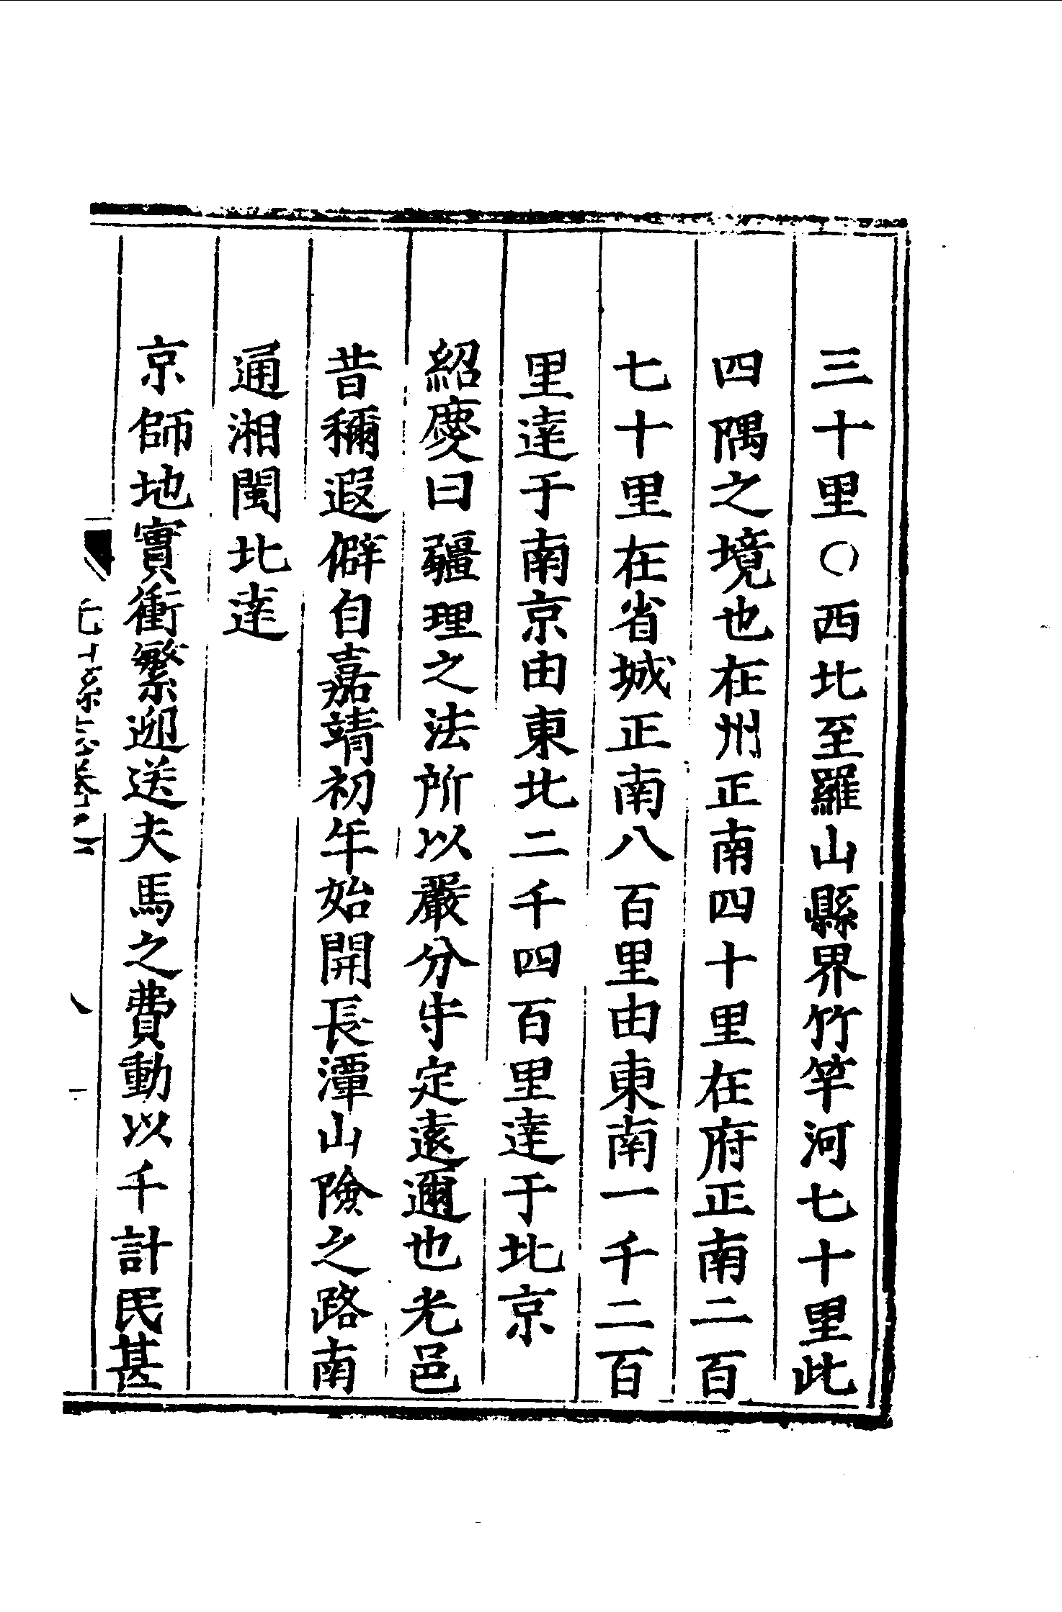 三十里○西北至羅山縣界竹竿河七十里此
四隅之境也在州正南四十里在府正南二百
七十里在省城正南八百里由東南一千二百
里達于南京由東北二千四百里達于北京
紹慶曰疆理之法所以嚴分守定遠邇也光邑
昔稱遐僻自嘉靖初年始開長潭山險之路南
通湘閩北達
京師地實衝繁迎送夫馬之費動以千計民甚